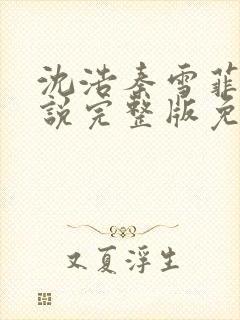 沈浩秦雪菲
説完整版免
又夏浮生